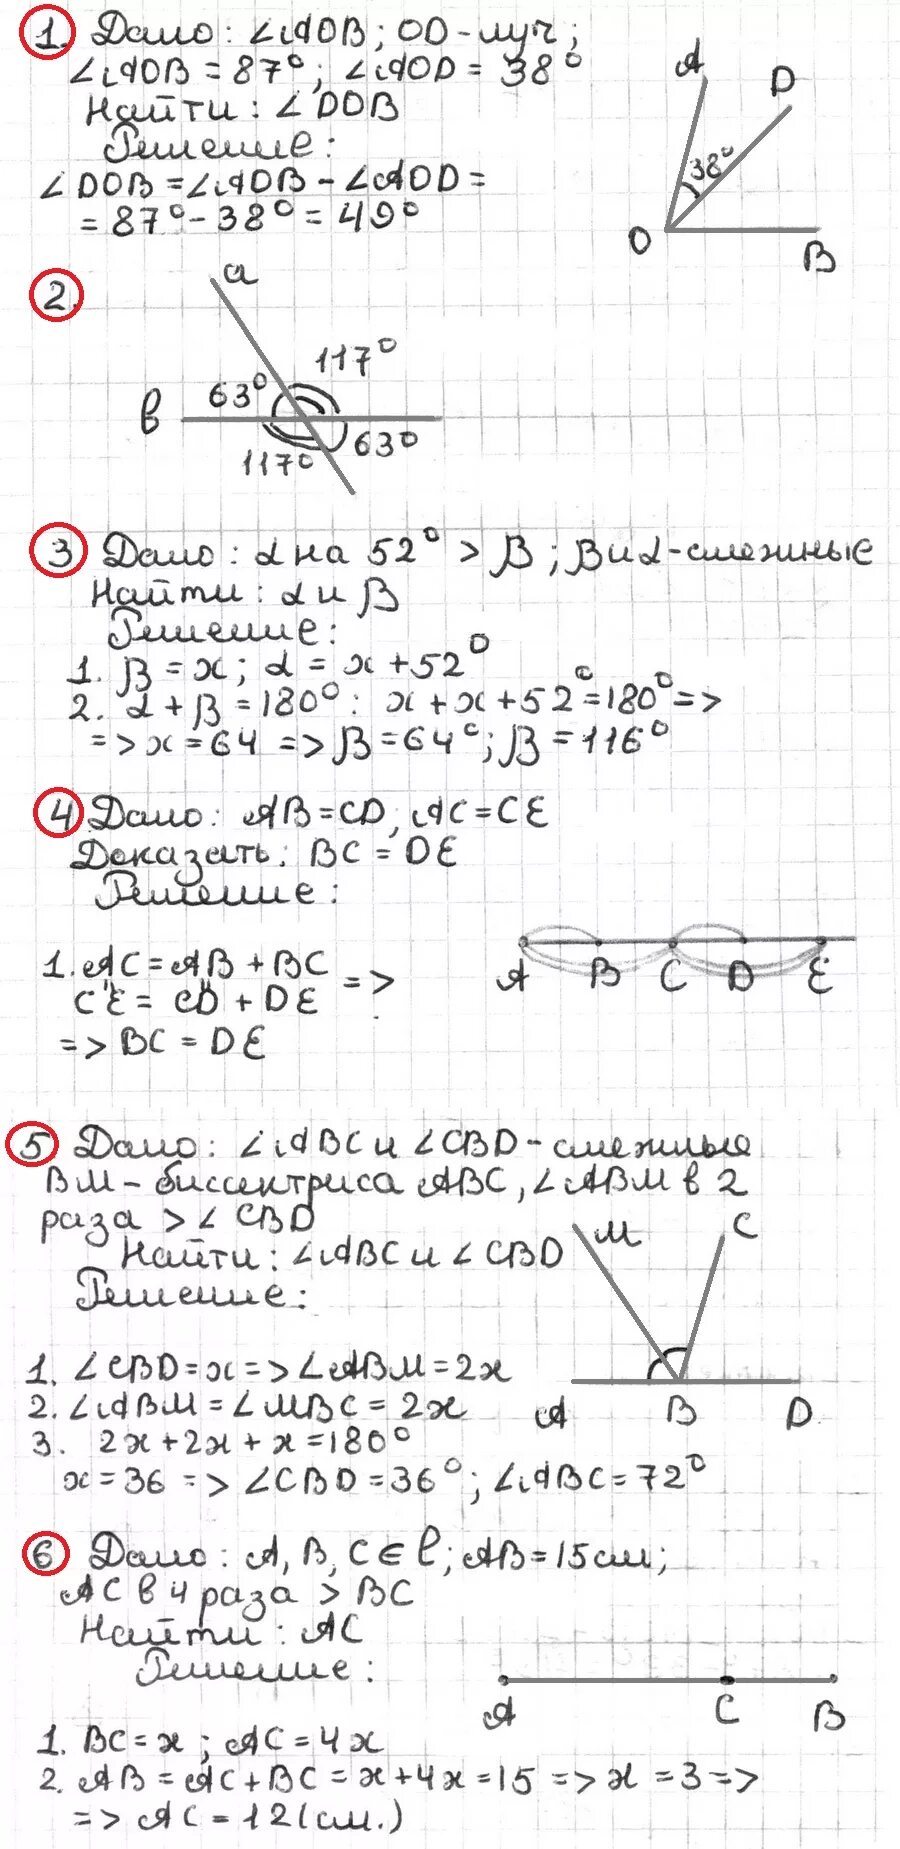 1. Дано: ∠AOB; OD - луч;
∠AOB = 87°; ∠AOD = 38°
Найти: ∠DOB
Решение:
∠DOB = ∠AOB - ∠AOD =
= 87° - 38° = 49°
A
D
38°
O
B
2.
a
117°
63°
в
63°
117°
3 Дано: α на 52° > β; β и α - смежные
Найти: α и β
Решение:
1. β = x; α = x + 52°
2. α + β = 180°: x + x + 52° = 180° =>
=> x = 64 => β = 64°; β = 116°
4 Дано: AB = CD, AC = CE
Доказать: BC = DE
Решение:
1. AC = AB + BC
CE = CD + DE =>
=> BC = DE
A B C D E
5 Дано: ∠ABC и ∠CBD - смежные
BM - биссектриса ABC, ∠ABM в 2
раза > ∠CBD
Найти: ∠ABC и ∠CBD
Решение:
M
C
1. ∠CBD = x => ∠ABM = 2x
2. ∠ABM = ∠MBC = 2x
3. 2x + 2x + x = 180°
x = 36 => ∠CBD = 36°; ∠ABC = 72°
A B D
6 Дано: A, B, C ∈ l; AB = 15 см;
AC в 4 раза > BC
Найти: AC
Решение:
A C B
1. BC = x; AC = 4x
2. AB = AC + BC = x + 4x = 15 => x = 3 =>
=> AC = 12 (см.)